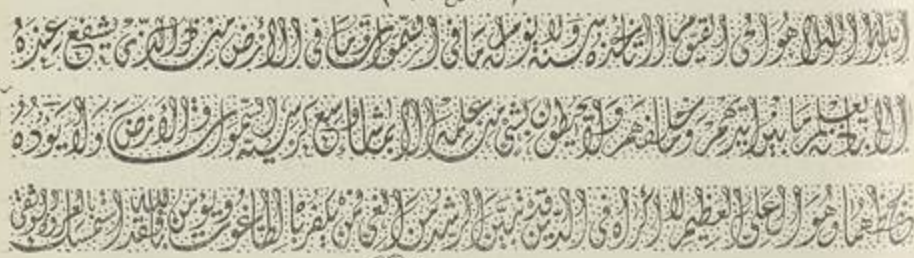 الله لا إله إلا هو الحي القيوم لا تأخذه سنة ولا نوم له ما في السموات وما في الأرض من ذا الذي يشفع عنده
إلا بإذنه يعلم ما بين أيديهم وما خلفهم ولا يحيطون بشيء من علمه إلا بما شاء وسع كرسيه السموات والأرض ولا يؤده
حفظهما وهو العلي العظيم لا إكراه في الدين قد تبين الرشد من الغي فمن يكفر بالطاغوت ويؤمن بالله فقد استمسك بالعروة الوثقى